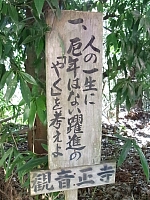 一、人の一生に
厄年はない躍進の
「やく」を考えよ
観音正寺